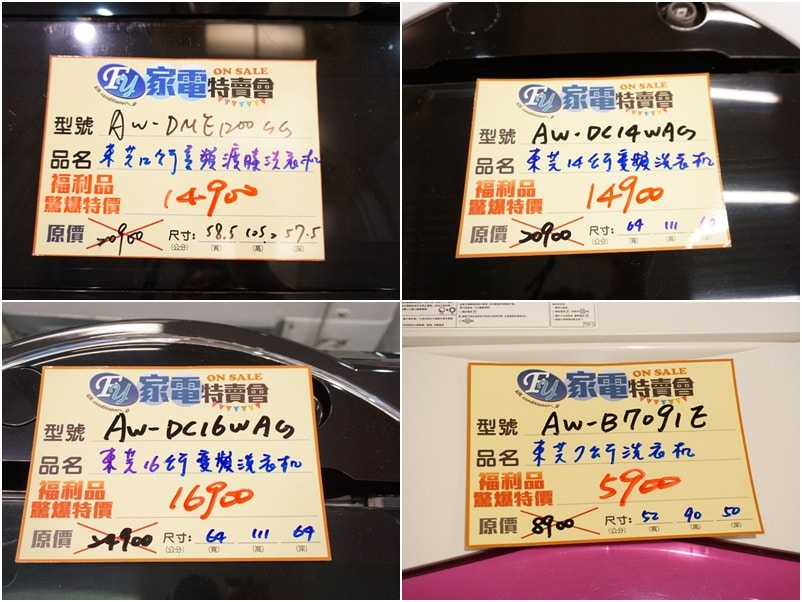 Fy 家電特賣會 ON SALE
air conditioner
型號 AW-DME1200GG
品名 東芝12公斤變頻鍍膜洗衣机
福利品
驚爆特價 14900
原價 20900 尺寸: 58.5 105.2 57.5
(公分) (寬) (高) (深)
Fy 家電特賣會 ON SALE
air conditioner
型號 AW-DC14WAG
品名 東芝14公斤變頻洗衣机
福利品
驚爆特價 14900
原價 20900 尺寸: 64 111
(公分) (寬) (高) (深)
Fy 家電特賣會 ON SALE
air conditioner
型號 AW-DC16WAG
品名 東芝16公斤變頻洗衣机
福利品
驚爆特價 16900
原價 24900 尺寸: 64 111 64
(公分) (寬) (高) (深)
Fy 家電特賣會 ON SALE
air conditioner
型號 AW-B7091E
品名 東芝7公斤洗衣机
福利品
驚爆特價 5900
原價 8900 尺寸: 52 90 50
(公分) (寬) (高) (深)